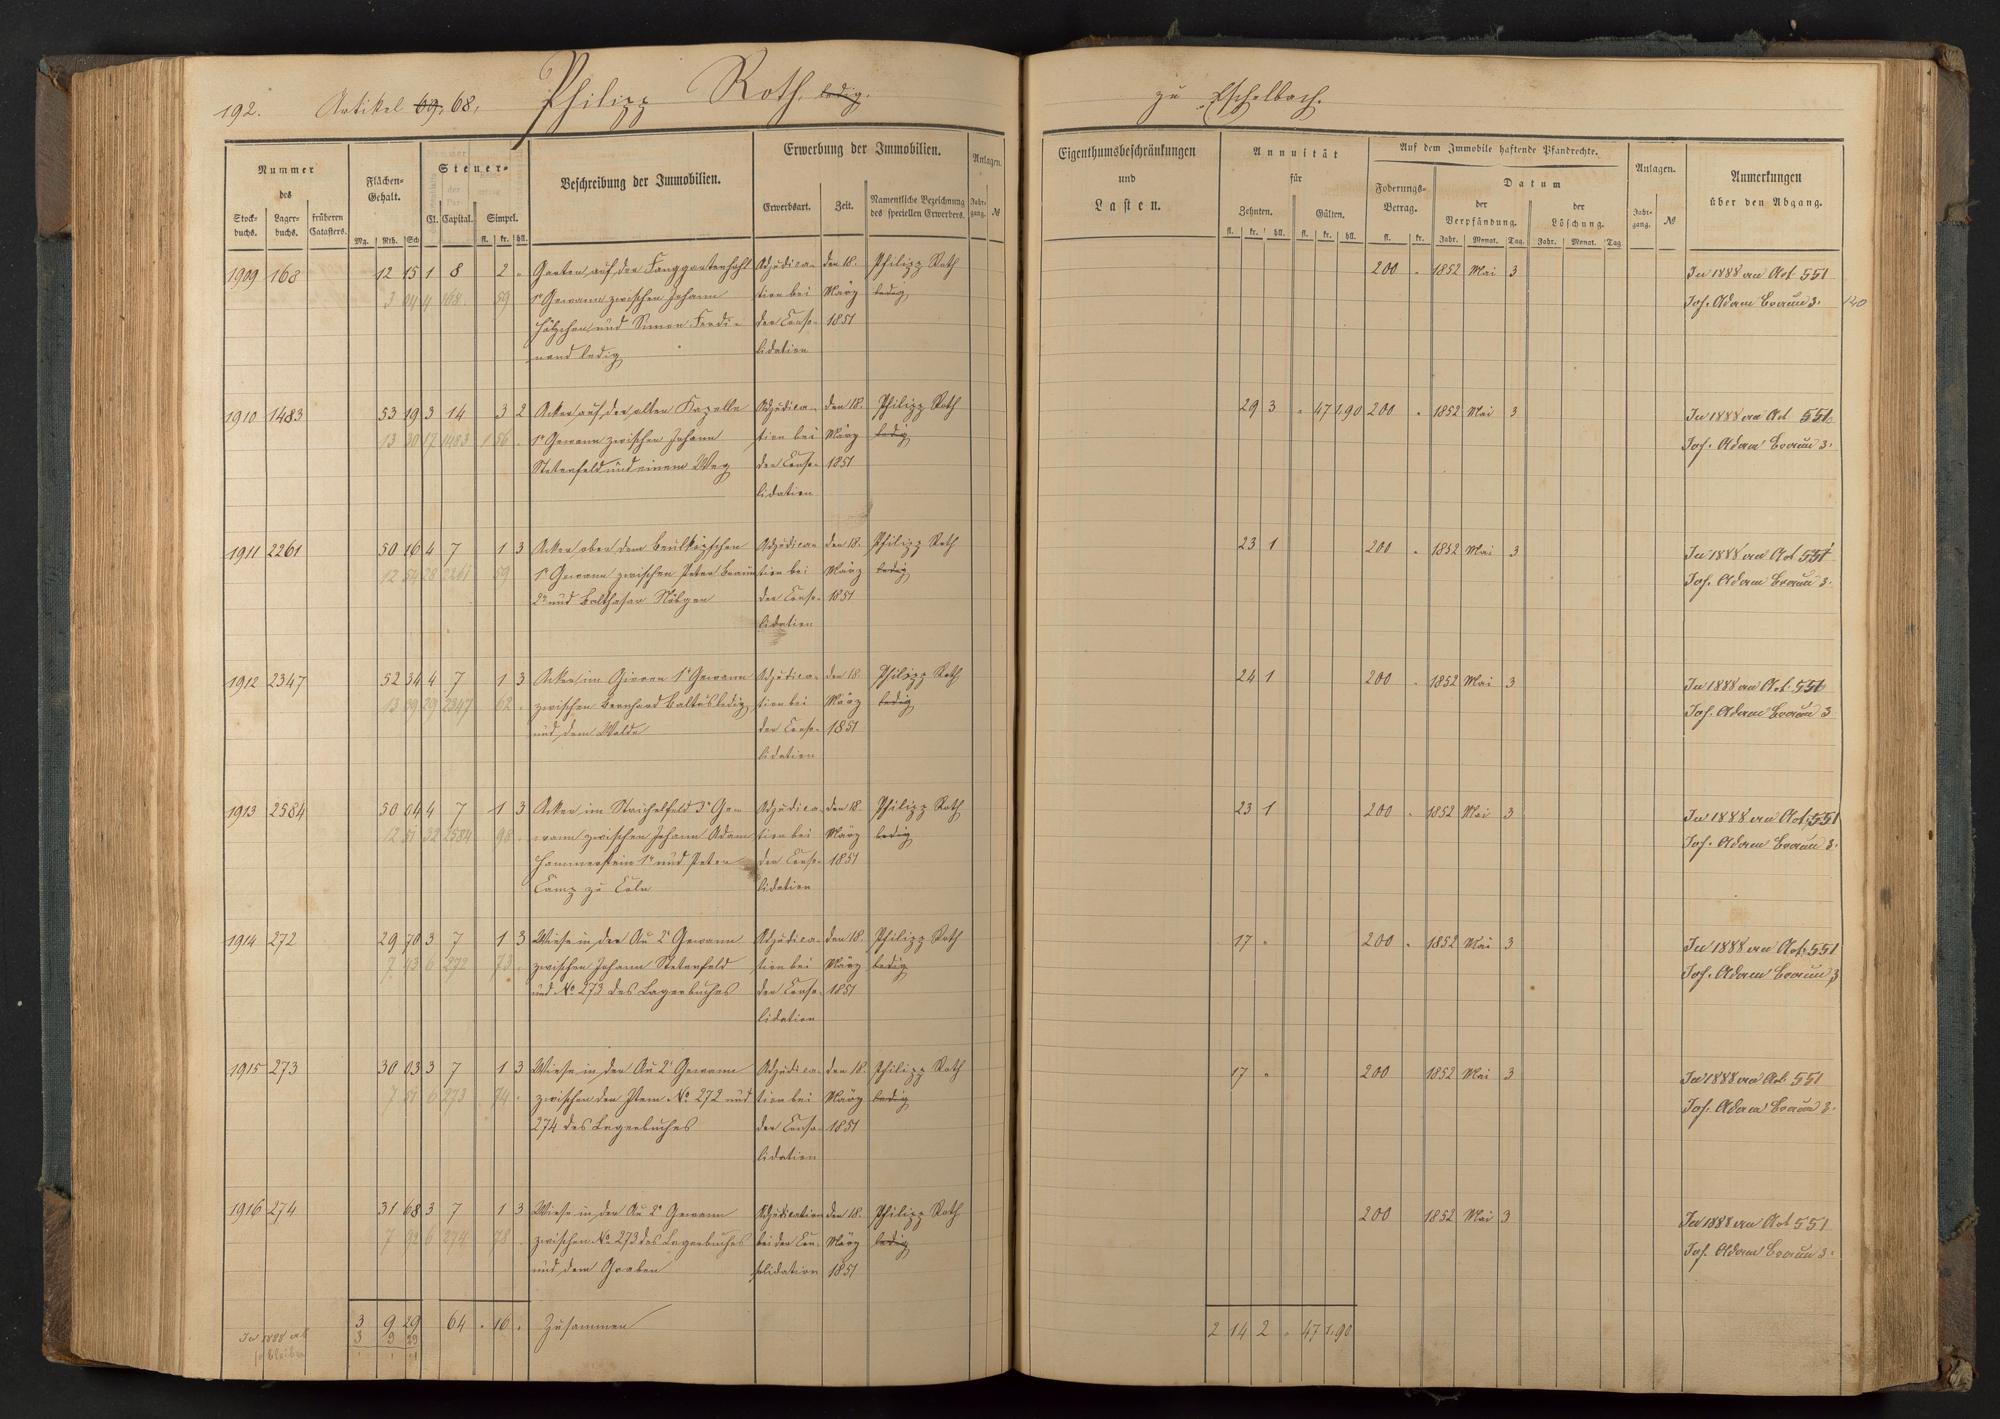 192. Artikel 69. 68. Philipp Roth, ledig. zu Eschelbach.
Nummer
des
Stock-buchs. Lager-buchs. früheren Catasters.
Flächen-Gehalt.
Mg. Rth. Sch
Steuer-
Cl. Capital. Simpel.
fl. kr. hll.
Beschreibung der Immobilien.
Erwerbung der Immobilien.
Erwerbsart. Zeit. Namentliche Bezeichnung des speciellen Erwerbers.
Anlagen.
Jahr-gang. №
Eigenthumsbeschränkungen
und
Lasten.
Annuität
für
Zehnten. Gülten.
fl. kr. hll. fl. kr. hll.
Auf dem Immobile haftende Pfandrechte.
Foderungs-Betrag.
fl. kr.
Datum
der Verpfändung. der Löschung.
Jahr. Monat. Tag. Jahr. Monat. Tag.
Anlagen.
Jahr-gang. №
Anmerkungen
über den Abgang.
1909 168 12 15 1 8 2 „ Garten auf der Adjudica- den 18. Philipp Roth 200 „ 1852 Mai 3 In 1888 an Art 551
3 04 4 168. 59 1r Gewann zwischen Johann tion bei März ledig Joh. Adam Braun 3. 140
und Simon Ferdi- der Conso- 1851
nand ledig lidation
1910 1483 53 19 3 14 3 2 Acker auf der alten Kapelle Adjudica- den 18. Philipp Roth 29 3 „ 47 1.90 200 „ 1852 Mai 3 In 1888 an Art 551
13 30 17 1483 1 56 1r Gewann zwischen Johann tion bei März ledig Joh. Adam Braun 3.
Steterfeld und einem Weg der Conso- 1851
lidation
1911 2261 50 16 4 7 1 3 Acker ober dem Adjudica- den 18. Philipp Roth 23 1 200 „ 1852 Mai 3 In 1888 an Art 551
12 54 28 2261 59 1r Gewann zwischen Peter Braun tion bei März ledig Joh. Adam Braun 3.
2r und Balthasar der Conso- 1851
lidation
1912 2347 52 34 4 7 1 3 Acker im 1r Gewann Adjudica- den 18. Philipp Roth 24 1 200 „ 1852 Mai 3 In 1888 an Art. 551
13 09 29 2347 62 zwischen Bernhard Baltus ledig tion bei März ledig Joh. Adam Braun 3
und dem Walde der Conso- 1851
lidation
1913 2584 50 04 4 7 1 3 Acker im 3r Ge- Adjudica- den 18. Philipp Roth 23 1 200 „ 1852 Mai 3 In 1888 an Art. 551
12 51 32 2584 98 wann zwischen Johann Adam tion bei März ledig Joh. Adam Braun 3.
Hammerstein 1r und Peter der Conso- 1851
Camp zu Cöln lidation
1914 272 29 70 3 7 1 3 Wiese in der Au 2r Gewann Adjudica- den 18. Philipp Roth 17 „ 200 „ 1852 Mai 3 In 1888 an Art. 551
7 43 6 272 73 zwischen Johann Steterfeld tion bei März ledig Joh. Adam Braun 3
und No 273 des Lagerbuches der Conso- 1851
lidation
1915 273 30 03 3 7 1 3 Wiese in der Au 2r Gewann Adjudica- den 18. Philipp Roth 17 „ 200 1852 Mai 3 In 1888 an Art. 551
7 51 6 273 74 zwischen den Item No 272 und tion bei März ledig Joh. Adam Braun 3.
274 des Lagerbuches der Conso- 1851
lidation
1916 274 31 68 3 7 1 3 Wiese in der Au 2r Gewann Adjudication den 18. Philipp Roth 200 1852 Mai 3 In 1888 an Art 551
7 92 6 274 78 zwischen No 273 des Lagerbuches bei der Con- März ledig Joh. Adam Braun 3.
und dem Graben solidation 1851
3 9 29 64 „ 16 „ Zusammen 2 14 2 „ 47 1.90
In 1888 ab 3 9 29
bleiben „ „ „